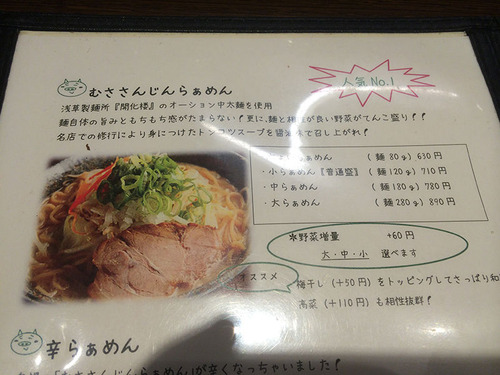 人気No.1
むささんじんらぁめん
浅草製麺所『開化楼』のオーション中太麺を使用
麺自体の旨みともちもち感がたまらない！更に、麺と相性が良い野菜がてんこ盛り！！
名店での修行により身につけたトンコツスープを醤油味で召し上がれ！
らぁめん （麺 80g）630円
・小らぁめん『普通盛』（麺120g）710円
・中らぁめん （麺180g）780円
・大らぁめん （麺280g）890円
※野菜増量 +60円
大・中・小 選べます
オススメ
梅干し（+50円）をトッピングしてさっぱり和
高菜（+110円）も相性抜群！
辛らぁめん
「むささんじんらぁめん」が辛くなっちゃいました！